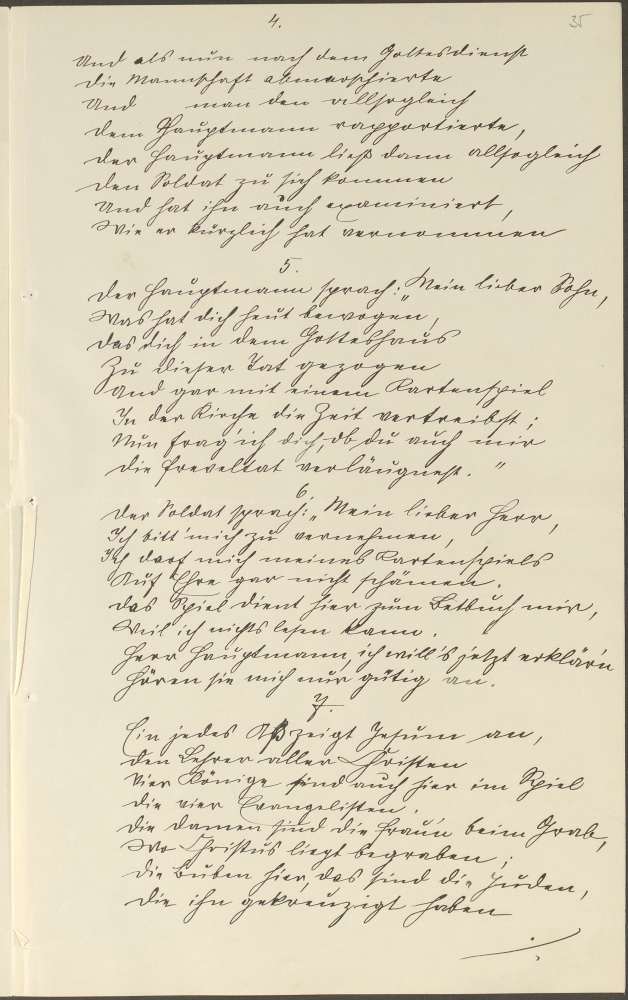 4.
35
Und als nun nach dem Gottesdienst
Die Mannschaft abmarschierte
Und man den allsogleich
Dem Hauptmann rapportierte,
Der Hauptmann ließ dann allsogleich
Den Soldat zu sich kommen
Und hat ihn auch examiniert,
Wie er kürzlich hat vernommen
5.
Der Hauptmann sprach: „Mein lieber Sohn,
Was hat dich heut bewogen,
Das dich in dem Gotteshaus
Zu dieser Tat gezogen
Und gar mit einem Kartenspiel
In der Kirche die Zeit vertreibst;
Nun frag' ich dich, ob du auch mir
Die Freveltat verläugnest."
6.
Der Soldat sprach: „Mein lieber Herr,
Ich bitt' mich zu vernehmen,
Ich darf mich meines Kartenspiels
Auf Ehre gar nicht schämen.
Das Spiel dient hier zum Betbuch mir,
Weil ich nichts lesen kann.
Herr Hauptmann, ich will's jetzt erklär'n
Hören sie mich nur gütig an.
7.
Ein jedes Aß zeigt Jesum an,
Den Lehrer aller Christen
Vier Könige sind auch hier im Spiel
Die vier Evangelisten.
Die Damen sind die Frau'n beim Grab,
Wo Christus liegt begraben;
Die Buben hier, das sind die Juden,
Die ihn gekreuzigt haben
./.